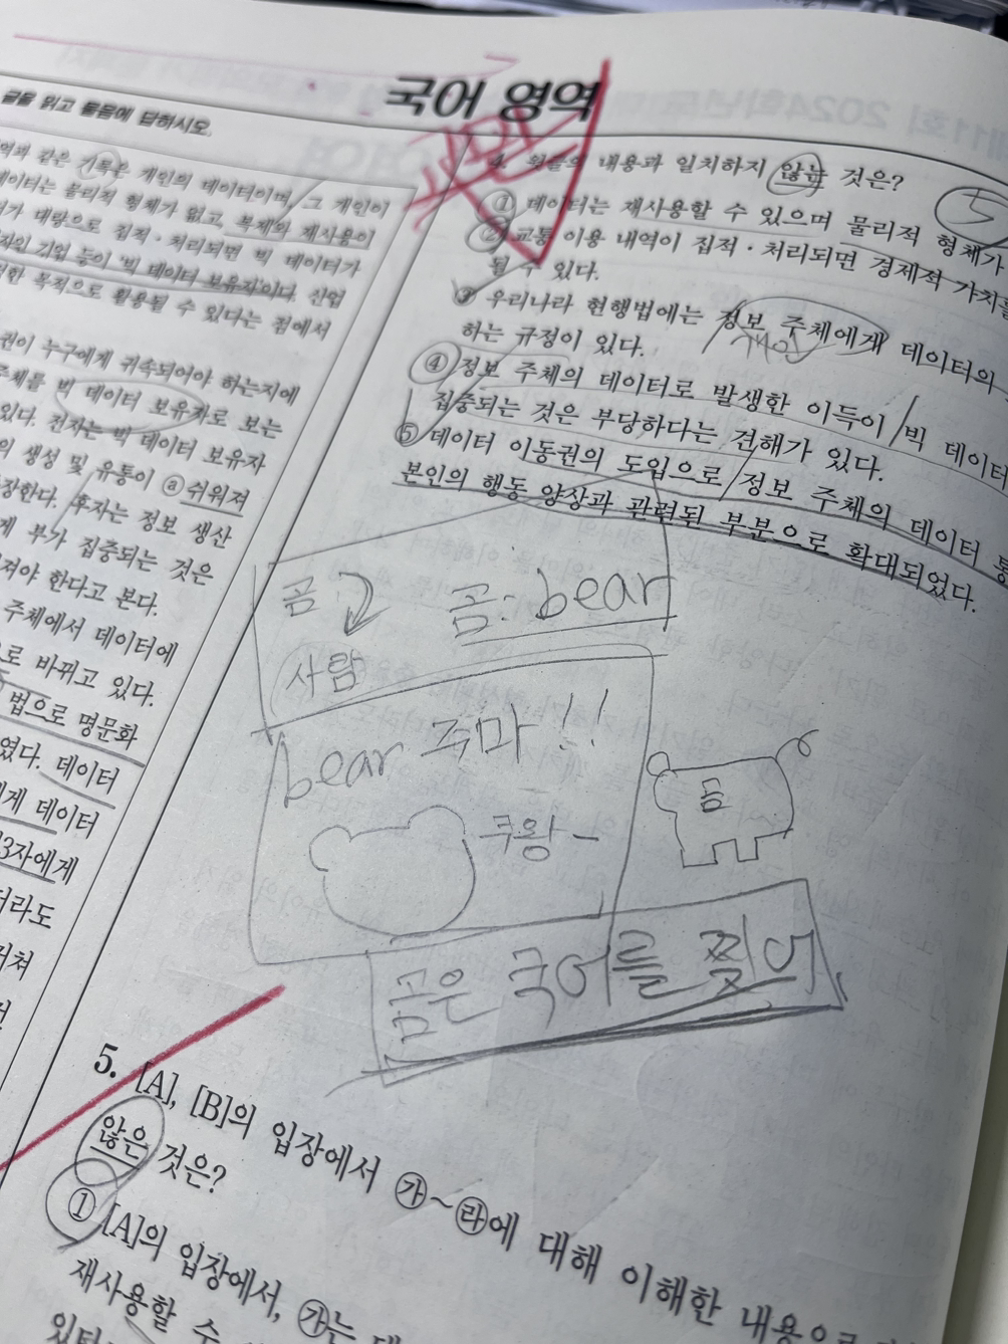 국어 영역
글을 읽고 물음에 답하시오.
같은 기록은 개인의 데이터이며, 그 개인이
데이터는 물리적 형체가 없고, 복제와 재사용이
대량으로 집적·처리되면 빅 데이터가
기업 등이 '빅 데이터 보유자'이다. 산업
목적으로 활용될 수 있다는 점에서
누구에게 귀속되어야 하는지에
빅 데이터 보유자로 보는
있다. 전자는 빅 데이터 보유자
생성 및 유통이 ⓐ쉬워져
후자는 정보 생산
부가 집중되는 것은
한다고 본다.
주체에서 데이터에
바뀌고 있다.
법으로 명문화
데이터
데이터
3자에게
4. 윗글의 내용과 일치하지 않는 것은?
① 데이터는 재사용할 수 있으며 물리적 형체가
② 교통 이용 내역이 집적·처리되면 경제적 가치를
될 수 있다.
③ 우리나라 현행법에는 정보 주체에게 데이터의
하는 규정이 있다.
개인
④ 정보 주체의 데이터로 발생한 이득이 빅 데이터
집중되는 것은 부당하다는 견해가 있다.
⑤ 데이터 이동권의 도입으로 정보 주체의 데이터 통
본인의 행동 양상과 관련된 부분으로 확대되었다.
5
곰 곰: bear
사람
bear 주마!!
쿠왕-
곰
곰은 국어를 찢어
5. [A], [B]의 입장에서 ㉮~㉱에 대해 이해한 내용으로
않은 것은?
① [A]의 입장에서, ㉮는
재사용할 수